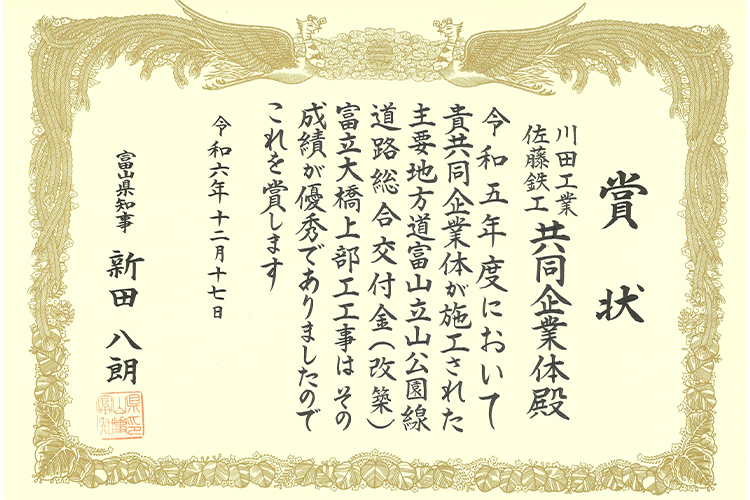 賞状
川田工業
佐藤鉄工
共同企業体殿
令和五年度において
貴共同企業体が施工された
主要地方道富山立山公園線
道路総合交付金(改築)
富立大橋上部工工事は その
成績が優秀でありましたので
これを賞します
令和六年十二月十七日
富山県知事 新田八朗